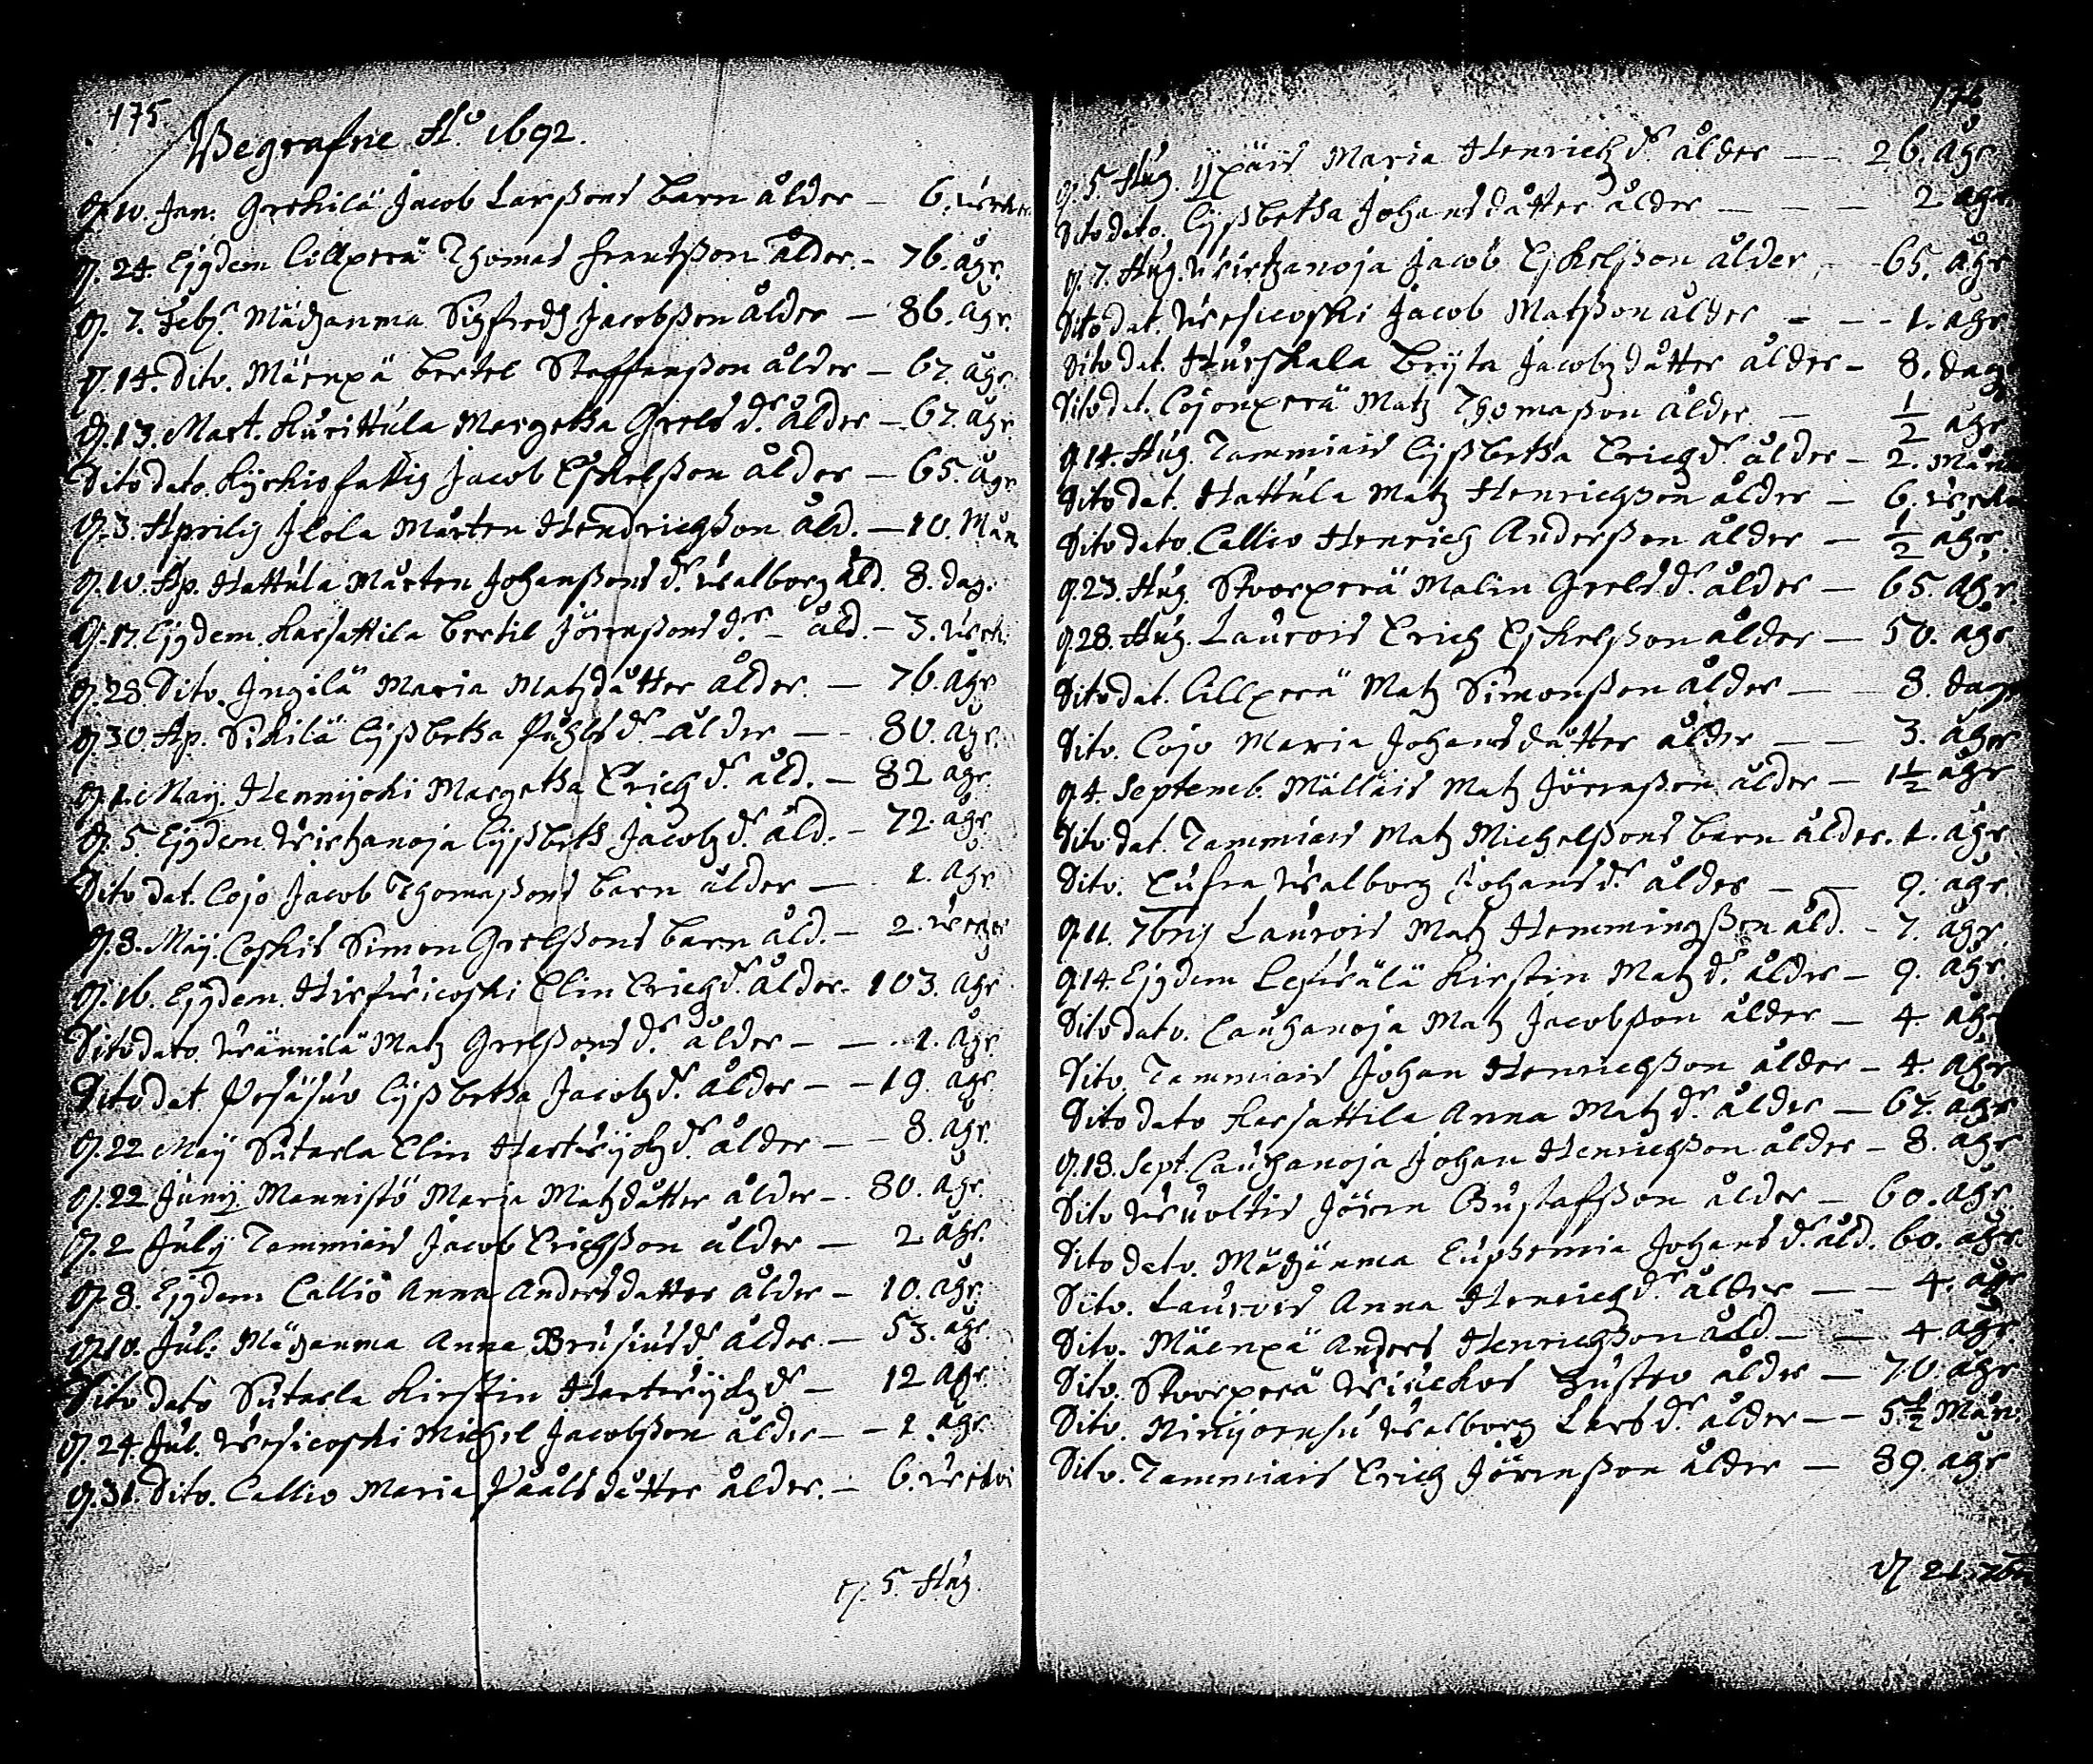 175.
Begrafne Aº 1692.
d. 10. Jan. Grekilä Jacob Larßons barn ålder – 6. weker
d. 24. Ejgdem Cillperä Thomas Frantßon ålder. – 76. åhr.
d. 7. Feb. Mäghanma Sigfredh Jacobßon ålder – 86. åhr.
d. 14. Dito. Mäenpä Bertel Steffenßon ålder – 67. åhr.
d. 13. Mart. Kurittula Margetha Grels dr. ålder – 67. åhr.
Dito dato. Kyrkiofattig Jacob Eskelßon ålder – 65. åhr.
d. 3. Aprilis Ilola Mårten Hendrichßon åld. – 10. Mån.
d. 10. Ap. Hattula Mårten Johanßons dr. Walborg åld. 8. dag.
d. 17. Ejgdem. Karsattila Bertil Jörenßons dr. – åld. – 3. wek.
d. 28. Dito. Ingilä Maria Matzdåtter ålder. – 76. åhr.
d. 30. Ap. Sikilä Lijßbetha Påhls dr. ålder – – 80. åhr.
d. 1. Maij. Hennijoki Margetha Erichz dr. åld. – 82 åhr.
d. 5. Ejgdem. Wirtzanoja Lijßbeth Jacobz dr. åld. – 72. åhr.
Dito dat. Cojo Jacob Thomaßons barn ålder – 1. åhr.
d. 8. Maij. Coskis Simon Grelßons barn åld. – 2. weker
d. 16. Ejgdem. Hirfwicoski Elin Erichz dr. ålder. 103. åhr.
Dito dato. Wännilä Matz Grelßons dr. ålder – – 1. åhr.
Dito dat. Pesäsuo Lijßbetha Jacobz dr. ålder – – 19. åhr.
d. 22 Maij Sutarla Elin Hartwijkz dr. ålder – – 8. åhr.
d. 22 Junij Mannistö Maria Matzdåtter ålder – 80. åhr.
d. 2 Julij Tammiais Jacob Erichßon ålder – 2 åhr.
d. 8. Ejgdem Callio Anna Andersdatter ålder – 10. åhr.
d. 10. Jul. Mäghanma Anna Brusius dr. ålder – 53. åhr.
Dito dato Sutarla Kirstin Hartwijkz dr – 12 åhr.
d. 24. Jul. Wesicoski Michel Jacobßon ålder – – 1. åhr.
d. 31. Dito. Callio Maria Påålsdåtter ålder. – 6. weckor
d. 5. Aug.
176
d. 5. Aug. Ijpäis Maria Henrichz dr. ålder – – 26. åhr
Dito dato. Lijßbetha Johansdåtter ålder – – – 2 åhr
d. 7. Aug. Wirtzanoja Jacob Eskelßon ålder – 65. åhr
Dito dat. Wesicoski Jacob Matßon ålder – – 1. åhr
Dito dat. Hurskala Bryta Jacobzdåtter ålder – 8. dag
Dito dat. Cojonperä Matz Thomaßon ålder – ½ åhr
d. 14. Aug. Tammiais Lijßbetha Erichz dr. ålder – 2. Mån
Dito dat. Hattula Matz Henrichßon ålder – 6. weka
Dito dato. Callio Henrich Anderßon ålder – ½ åhr.
d. 23. Aug. Stoorperä Malin Grels dr. ålder – 65. åhr.
d. 28. Aug. Laurois Erich Eskelßon ålder – 50. åhr
Dito dat. Cillperä Matz Simonßon ålder – 8. dag
Dito. Cojo Maria Johansdåtter ålder – – 3. åhr
d. 4. Septemb. Mälläis Matz Jörenßon ålder – 1½ åhr
Dito dat. Tammiais Matz Michelßons barn ålder. 1. åhr
Dito. Eufra Walborg Johans dr. ålder – – 9. åhr.
d. 11. 7bris Laurois Matz Hemmingßon åld. – 7. åhr.
d. 14. Ejgdem Lepwälä Kirstin Matz dr. ålder – 9. åhr.
Dito dato. Cauhanoja Matz Jacobßon ålder – 4. åhr
Dito. Tammiais Johan Henrichßon ålder – 4. åhr
Dito dato Karsattila Anna Matz dr. ålder – 67. åhr
d. 18. Sept. Cauhanoja Johan Henrichßon ålder – 8. åhr
Dito Wuoltis Jören Gustafßon ålder – 60. åhr.
Dito dato. Mäghänma Euphemia Johans dr. åld. 60. åhr.
Dito. Laurois Anna Henrichz dr. ålder – – 4. åhr
Dito. Mäenpä Anders Henrichßon åld – – 4 åhr
Dito. Stoorperä ålder – 70. åhr
Dito. Ninijoensu Walborg Lars dr. ålder – – 5½ Mån.
Dito. Tammiais Erich Jörenßon ålder – 89. åhr
d 21. 7br